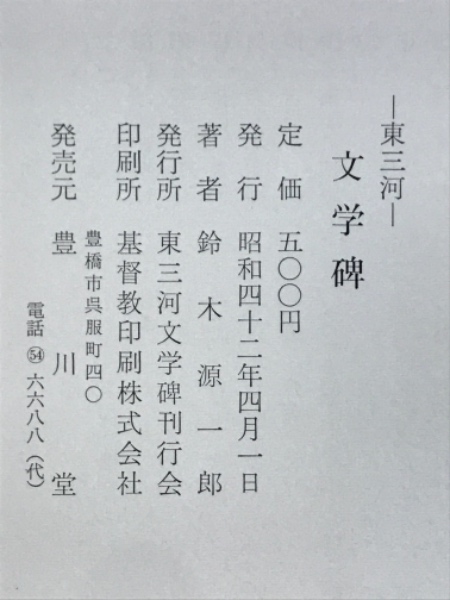 ―東三河―
文学碑
定価 五〇〇円
発行 昭和四十二年四月一日
著者 鈴木源一郎
発行所 東三河文学碑刊行会
印刷所 基督教印刷株式会社
豊橋市呉服町四〇
発売元 豊川堂
電話 ㊴ 六六八八(代)